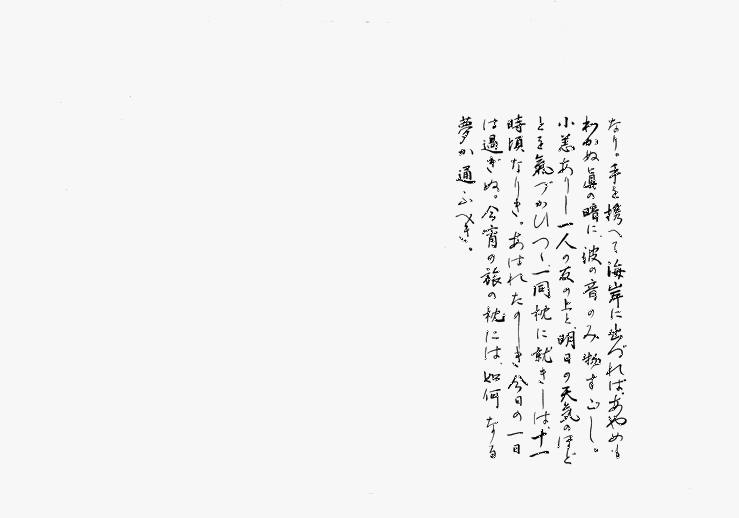 なり。手を携へて海岸に出づれば、あやめも
わかぬ眞の暗に、波の音のみ物すごし。
小恙ありし一人の友の上と、明日の天氣のほど
とを氣づかひつゝ、一同枕に就きしは、十一
時頃なりき。あはれたのしき今日の一日
は過ぎぬ。今宵の旅の枕には、如何なる
夢か通ふべき。